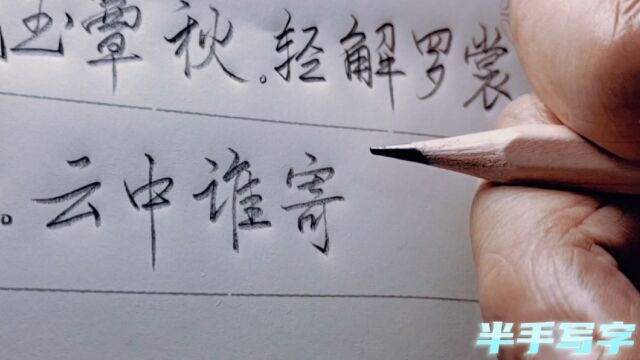 玉簟秋。轻解罗裳
。云中谁寄
半手写字